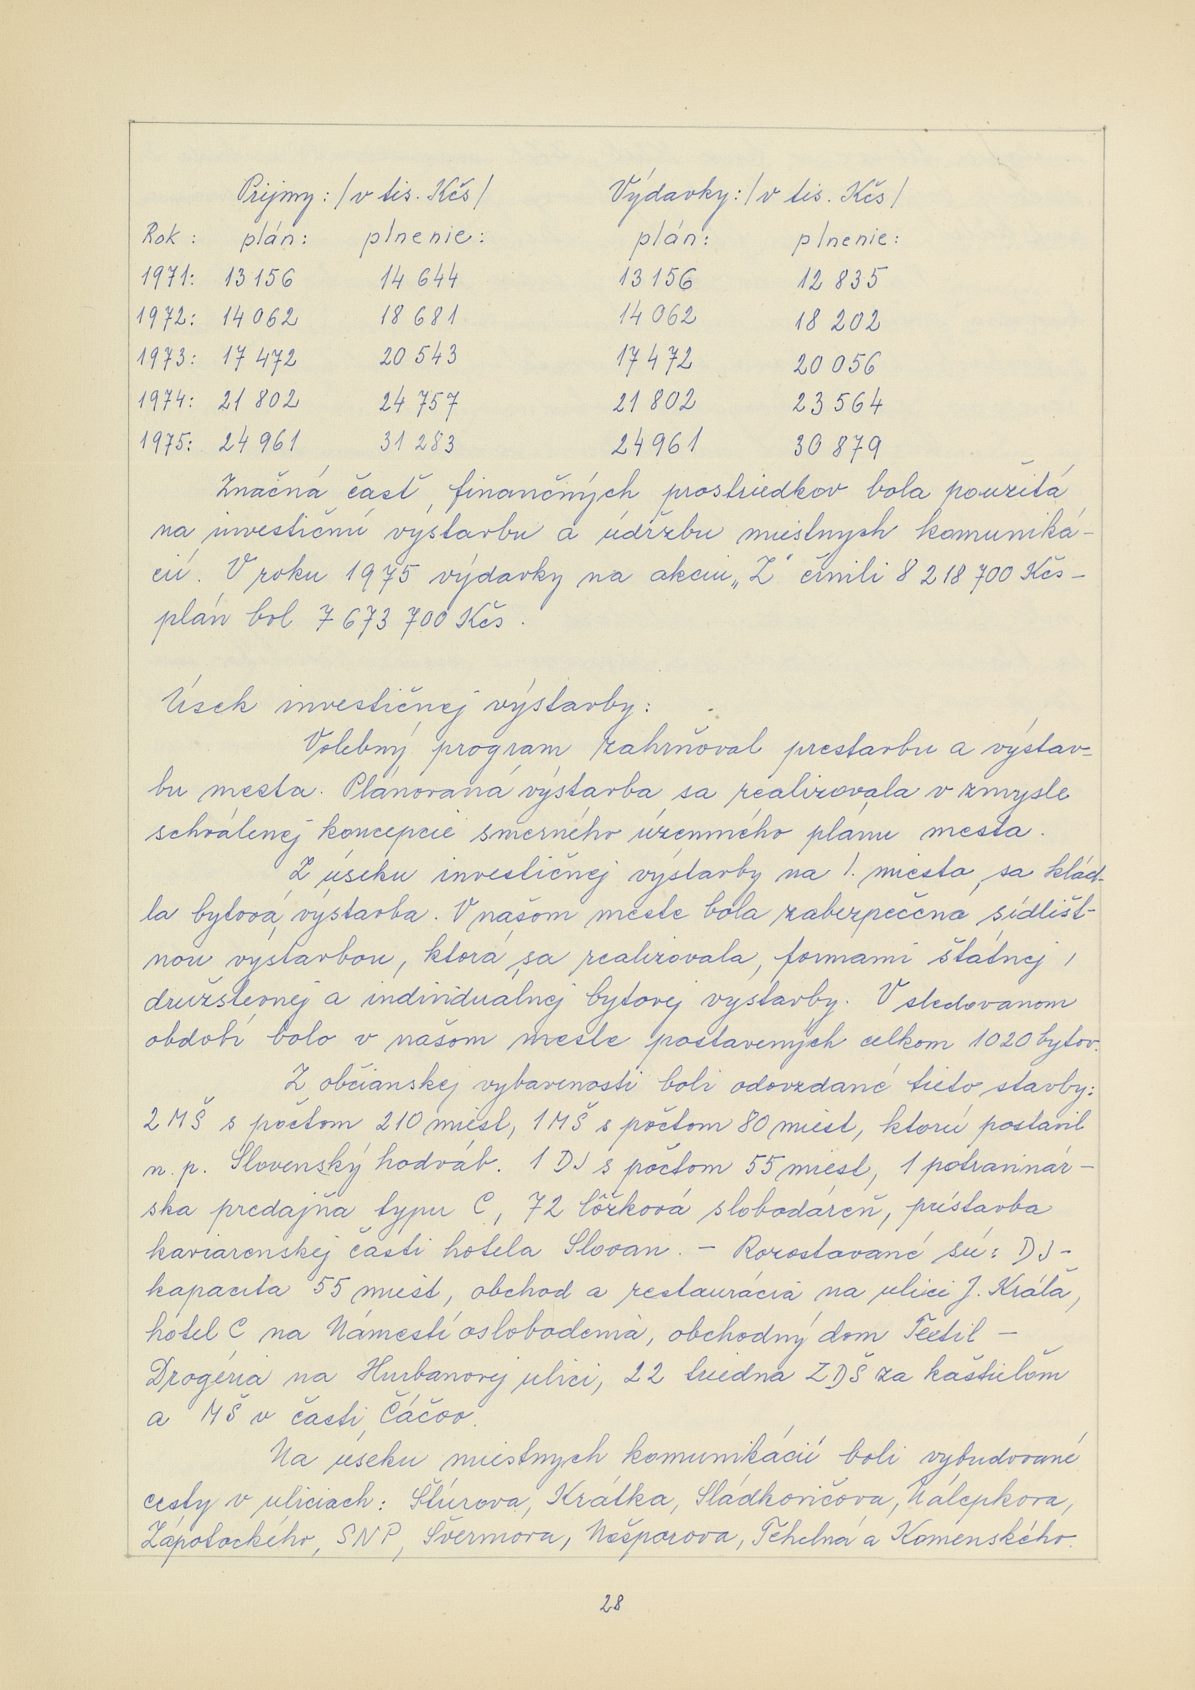 Príjmy: /v tis. Kčs/ Výdavky: /v tis. Kčs/
Rok: plán: plnenie: plán: plnenie:
1971: 13 156 14 644 13 156 12 835
1972: 14 062 18 681 14 062 18 202
1973: 17 472 20 543 17 472 20 056
1974: 21 802 24 757 21 802 23 564
1975: 24 961 31 283 24 961 30 879
Značná časť finančných prostriedkov bola použitá
na investičnú výstavbu a údržbu miestnych komuniká-
cií. V roku 1975 výdavky na akciu „Z" činili 8 218 700 Kčs -
plán bol 7 673 700 Kčs.
Úsek investičnej výstavby:
Volebný program zahrňoval prestavbu a výstav-
bu mesta. Plánovaná výstavba sa realizovala v zmysle
schválenej koncepcie smerného územného plánu mesta.
Z úseku investičnej výstavby na 1. miesto sa klád-
la bytová výstavba. V našom meste bola zabezpečená sídlišt-
nou výstavbou, ktorá sa realizovala, formami štátnej,
družstevnej a individuálnej bytovej výstavby. V sledovanom
období bolo v našom meste postavených celkom 1020 bytov.
Z občianskej vybavenosti boli odovzdané tieto stavby:
2 MŠ s počtom 210 miest, 1 MŠ s počtom 80 miest, ktorú postavil
n. p. Slovenský hodváb. 1 DJ s počtom 55 miest, 1 potravinár-
ska predajňa typu C, 72 lôžková slobodáreň, prístavba
kaviarenskej časti hotela Slovan. - Rozostavané sú: DJ -
kapacita 55 miest, obchod a reštaurácia na ulici J. Kráľa,
hotel C na Námestí oslobodenia, obchodný dom Textil -
Drogéria na Hurbanovej ulici, 22 triedna ZDŠ za kaštieľom
a MŠ v časti Čáčov.
Na úseku miestnych komunikácií boli vybudované
cesty v uliciach: Štúrova, Krátka, Sládkovičova, Nálepkova,
Zápotockého, SNP, Švermova, Nešporova, Tehelná a Komenského.
28